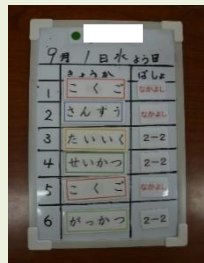 9月1日水よう日
きょうか ばしょ
1 こくご なかよし
2 さんすう なかよし
3 たいいく 2-2
4 せいかつ 2-2
5 こくご なかよし
6 がっかつ 2-2